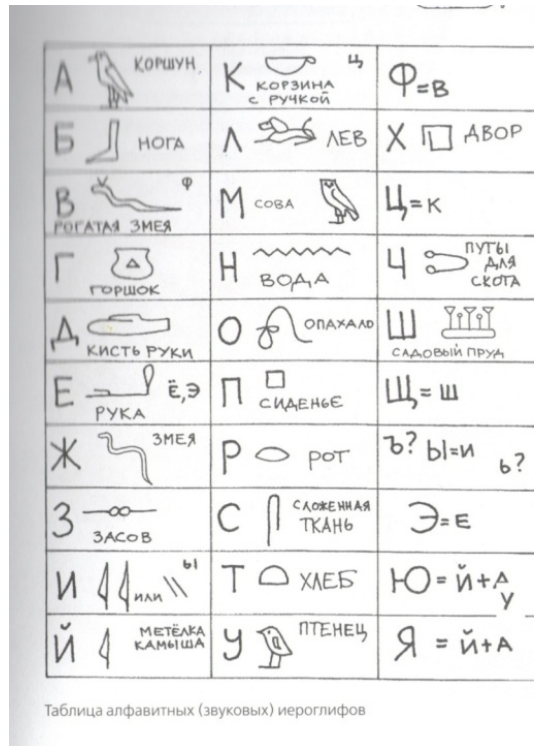 А КОРШУН
К Ц КОРЗИНА С РУЧКОЙ
Ф=В
Б НОГА
Л ЛЕВ
Х ДВОР
В Ф РОГАТАЯ ЗМЕЯ
М СОВА
Ц=К
Г ГОРШОК
Н ВОДА
Ч ПУТЫ ДЛЯ СКОТА
Д КИСТЬ РУКИ
О ОПАХАЛО
Ш САДОВЫЙ ПРУД
Е Ё,Э РУКА
П СИДЕНЬЕ
Щ=Ш
Ж ЗМЕЯ
Р РОТ
Ъ? Ы=И Ь?
З ЗАСОВ
С СЛОЖЕННАЯ ТКАНЬ
Э=Е
И ИЛИ Ы
Т ХЛЕБ
Ю=Й+А У
Й МЕТЁЛКА КАМЫША
У ПТЕНЕЦ
Я = Й+А
Таблица алфавитных (звуковых) иероглифов